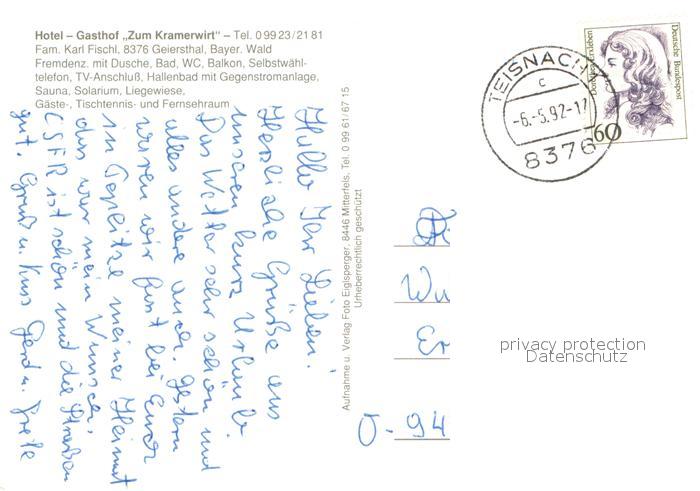 Hotel – Gasthof „Zum Kramerwirt“ – Tel. 0 99 23 / 21 81
Fam. Karl Fischl, 8376 Geiersthal, Bayer. Wald
Fremdenz. mit Dusche, Bad, WC, Balkon, Selbstwähl-
telefon, TV-Anschluß, Hallenbad mit Gegenstromanlage,
Sauna, Solarium, Liegewiese,
Gäste-, Tischtennis- und Fernsehraum
Hallo Ihr Lieben!
Herzliche Grüße aus
unseren kurz Urlaub.
Das Wetter sehr schön und
alles andere auch. Gestern
waren wir fast bei Euch
in Teplitz meiner Heimat
das war mein Wunsch,
CSFR ist schön und die Straßen
gut. Gruß u. Kuss Gerd u. Grete
Aufnahme u. Verlag Foto Eiglsperger, 8446 Mitterfels, Tel. 0 99 61/67 15
Urheberrechtlich geschützt
TEISNACH
c
-6.-5.92-17
8376
Dorothea Erxleben
Deutsche Bundespost
60
Wu
Er
O-94
privacy protection
Datenschutz